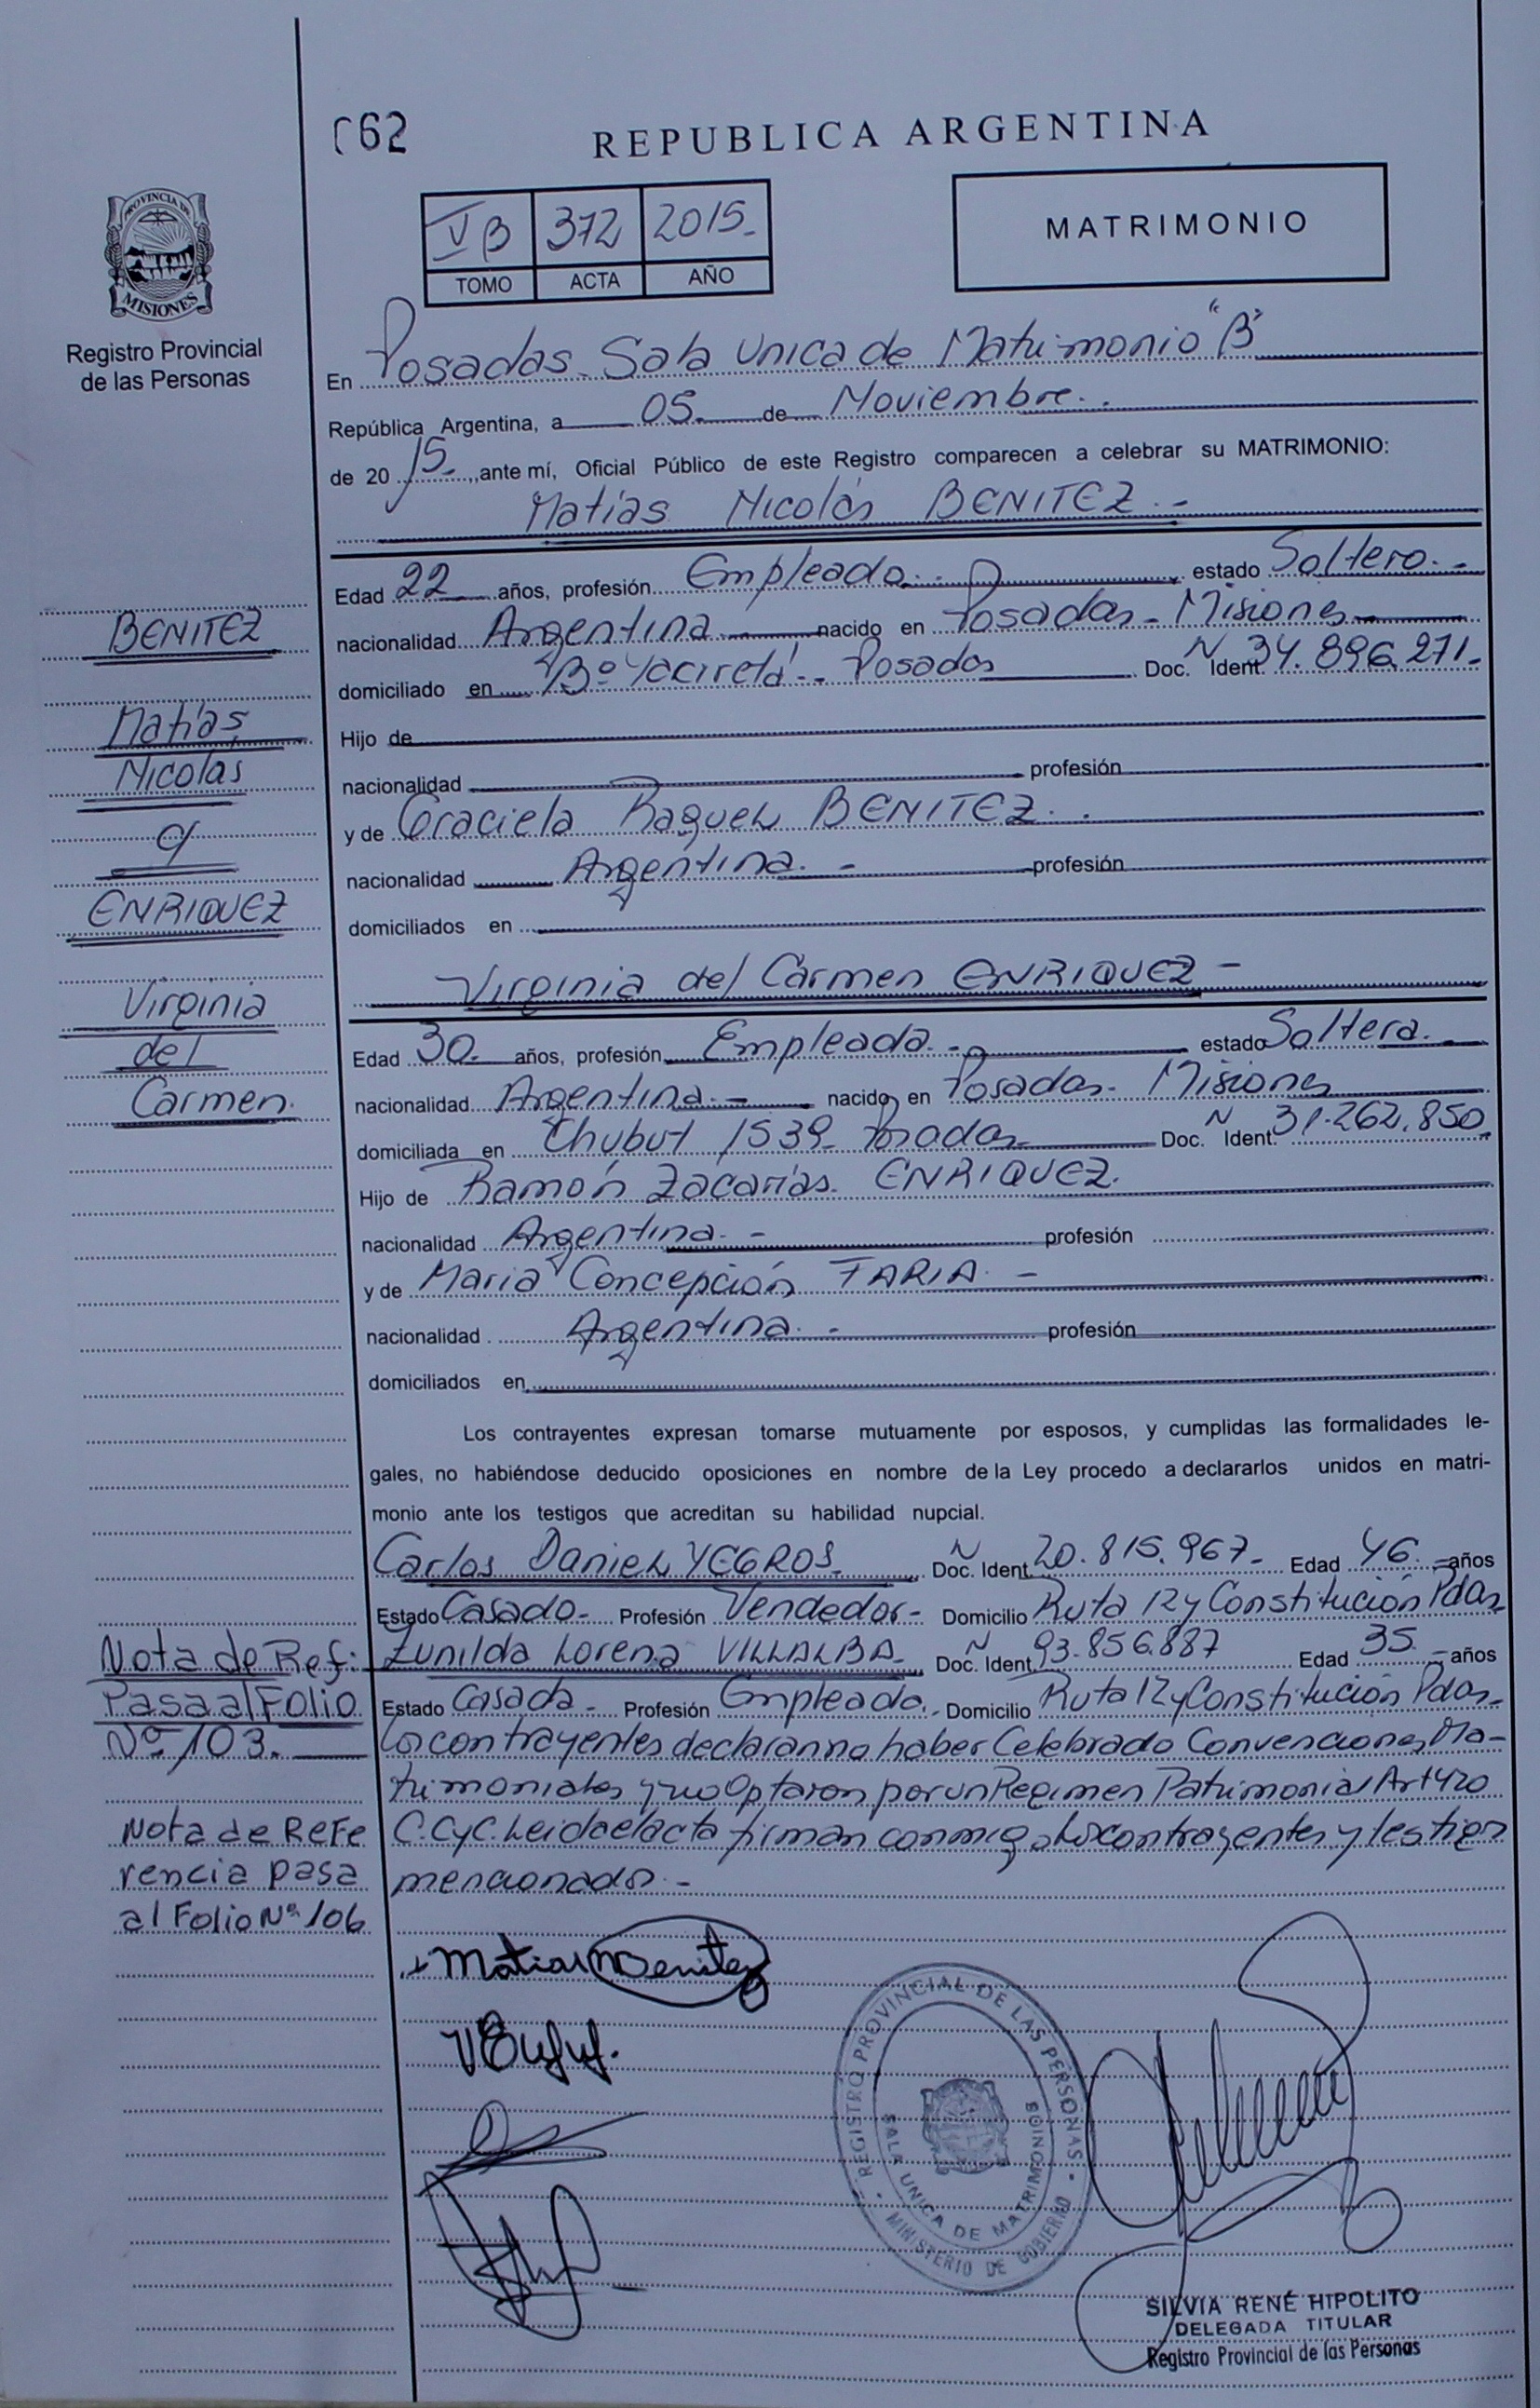 062
REPUBLICA ARGENTINA
PROVINCIA DE
MISIONES
Registro Provincial
de las Personas
VB 372 2015.
TOMO ACTA AÑO
MATRIMONIO
En Posadas. Sala Unica de Matrimonio "B"
República Argentina, a 05. de Noviembre.
de 20 15. ,ante mí, Oficial Público de este Registro comparecen a celebrar su MATRIMONIO:
Matías Nicolás BENITEZ. -
Edad 22 años, profesión Empleado. estado Soltero. -
nacionalidad Argentina nacido en Posadas - Misiones
domiciliado en Bº Yacireta'. Posadas Doc. N Ident. 34.896.271.
Hijo de
nacionalidad profesión
y de Graciela Raquel BENITEZ.
nacionalidad Argentina. - profesión
domiciliados en
Virginia del Carmen ENRIQUEZ -
Edad 30. años, profesión Empleada. - estado Soltera.
nacionalidad Argentina. - nacido en Posadas - Misiones
domiciliada en Chubut 1539 - Posadas Doc. N Ident. 31.262.850
Hijo de Ramón Zacarías ENRIQUEZ.
nacionalidad Argentina. - profesión
y de Maria Concepción FARIA. -
nacionalidad Argentina. - profesión
domiciliados en
Los contrayentes expresan tomarse mutuamente por esposos, y cumplidas las formalidades le-
gales, no habiéndose deducido oposiciones en nombre de la Ley procedo a declararlos unidos en matri-
monio ante los testigos que acreditan su habilidad nupcial.
Carlos Daniel YEGROS Doc. N Ident. 20.815.967- Edad 46. años
Estado Casado - Profesión Vendedor - Domicilio Ruta 12 y Constitución Pdas
Zunilda Lorena VILLALBA Doc. N Ident. 93.856.887 Edad 35 años
Estado Casada - Profesión Empleada. Domicilio Ruta 12 y Constitución Pdas
Los contrayentes declaran no haber Celebrado Convenciones Ma-
trimoniales y no Optaron por un Regimen Patrimonial Art 420
C.CyC. Leida el acta firman conmigo los contrayentes y testigos
mencionados. -
BENITEZ
Matías
Nicolas
c/
ENRIQUEZ
Virginia
del
Carmen.
Nota de Ref:
Pasa al Folio
Nº 103.
Nota de Refe
rencia pasa
al Folio Nº 106
Matias N Benitez
REGISTRO PROVINCIAL DE LAS PERSONAS
MINISTERIO DE GOBIERNO
SALA UNICA DE MATRIMONIOS
SILVIA RENÉ HIPOLITO
DELEGADA TITULAR
Registro Provincial de las Personas